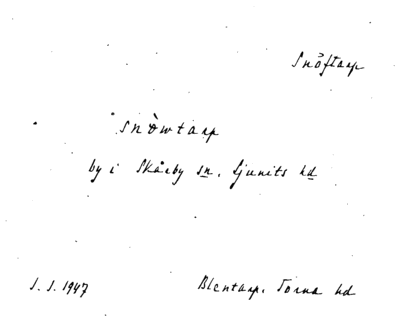 Snöftarp
snòwtarp
by i Skårby sn, Ljunits hd
J. J. 1947
Blentarp, Torna hd